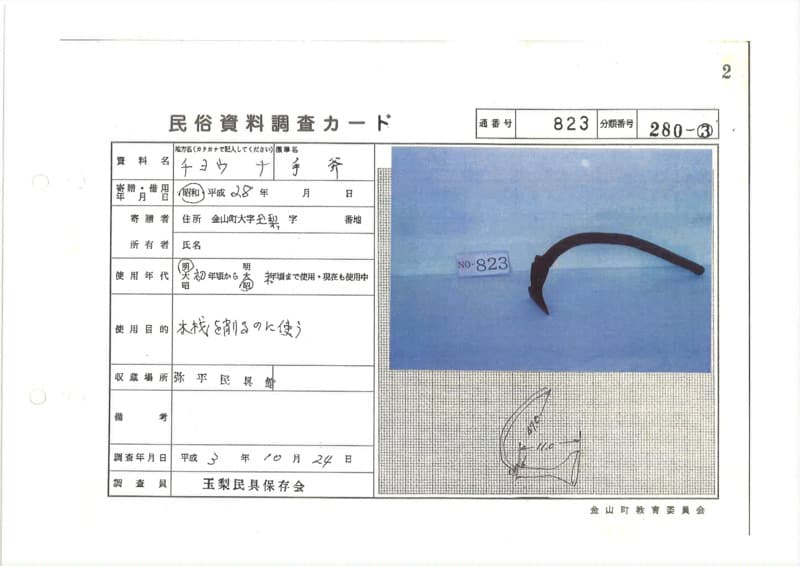 2
民俗資料調査カード
通番号 823 分類番号 280-③
資料名 地方名(カタカナで記入してください) 標準名
チョウナ 手斧
寄贈・借用年月日 昭和・平成 28年 月 日
寄贈者 住所 金山町大字玉梨 字 番地
所有者 氏名
使用年代 明大昭 初年頃から 明大昭 年頃まで使用・現在も使用中
使用目的 木材を削るのに使う
収蔵場所 弥平民具館
備考
調査年月日 平成 3 年 10 月 24 日
調査員 玉梨民具保存会
NO-823
11.0
金山町教育委員会